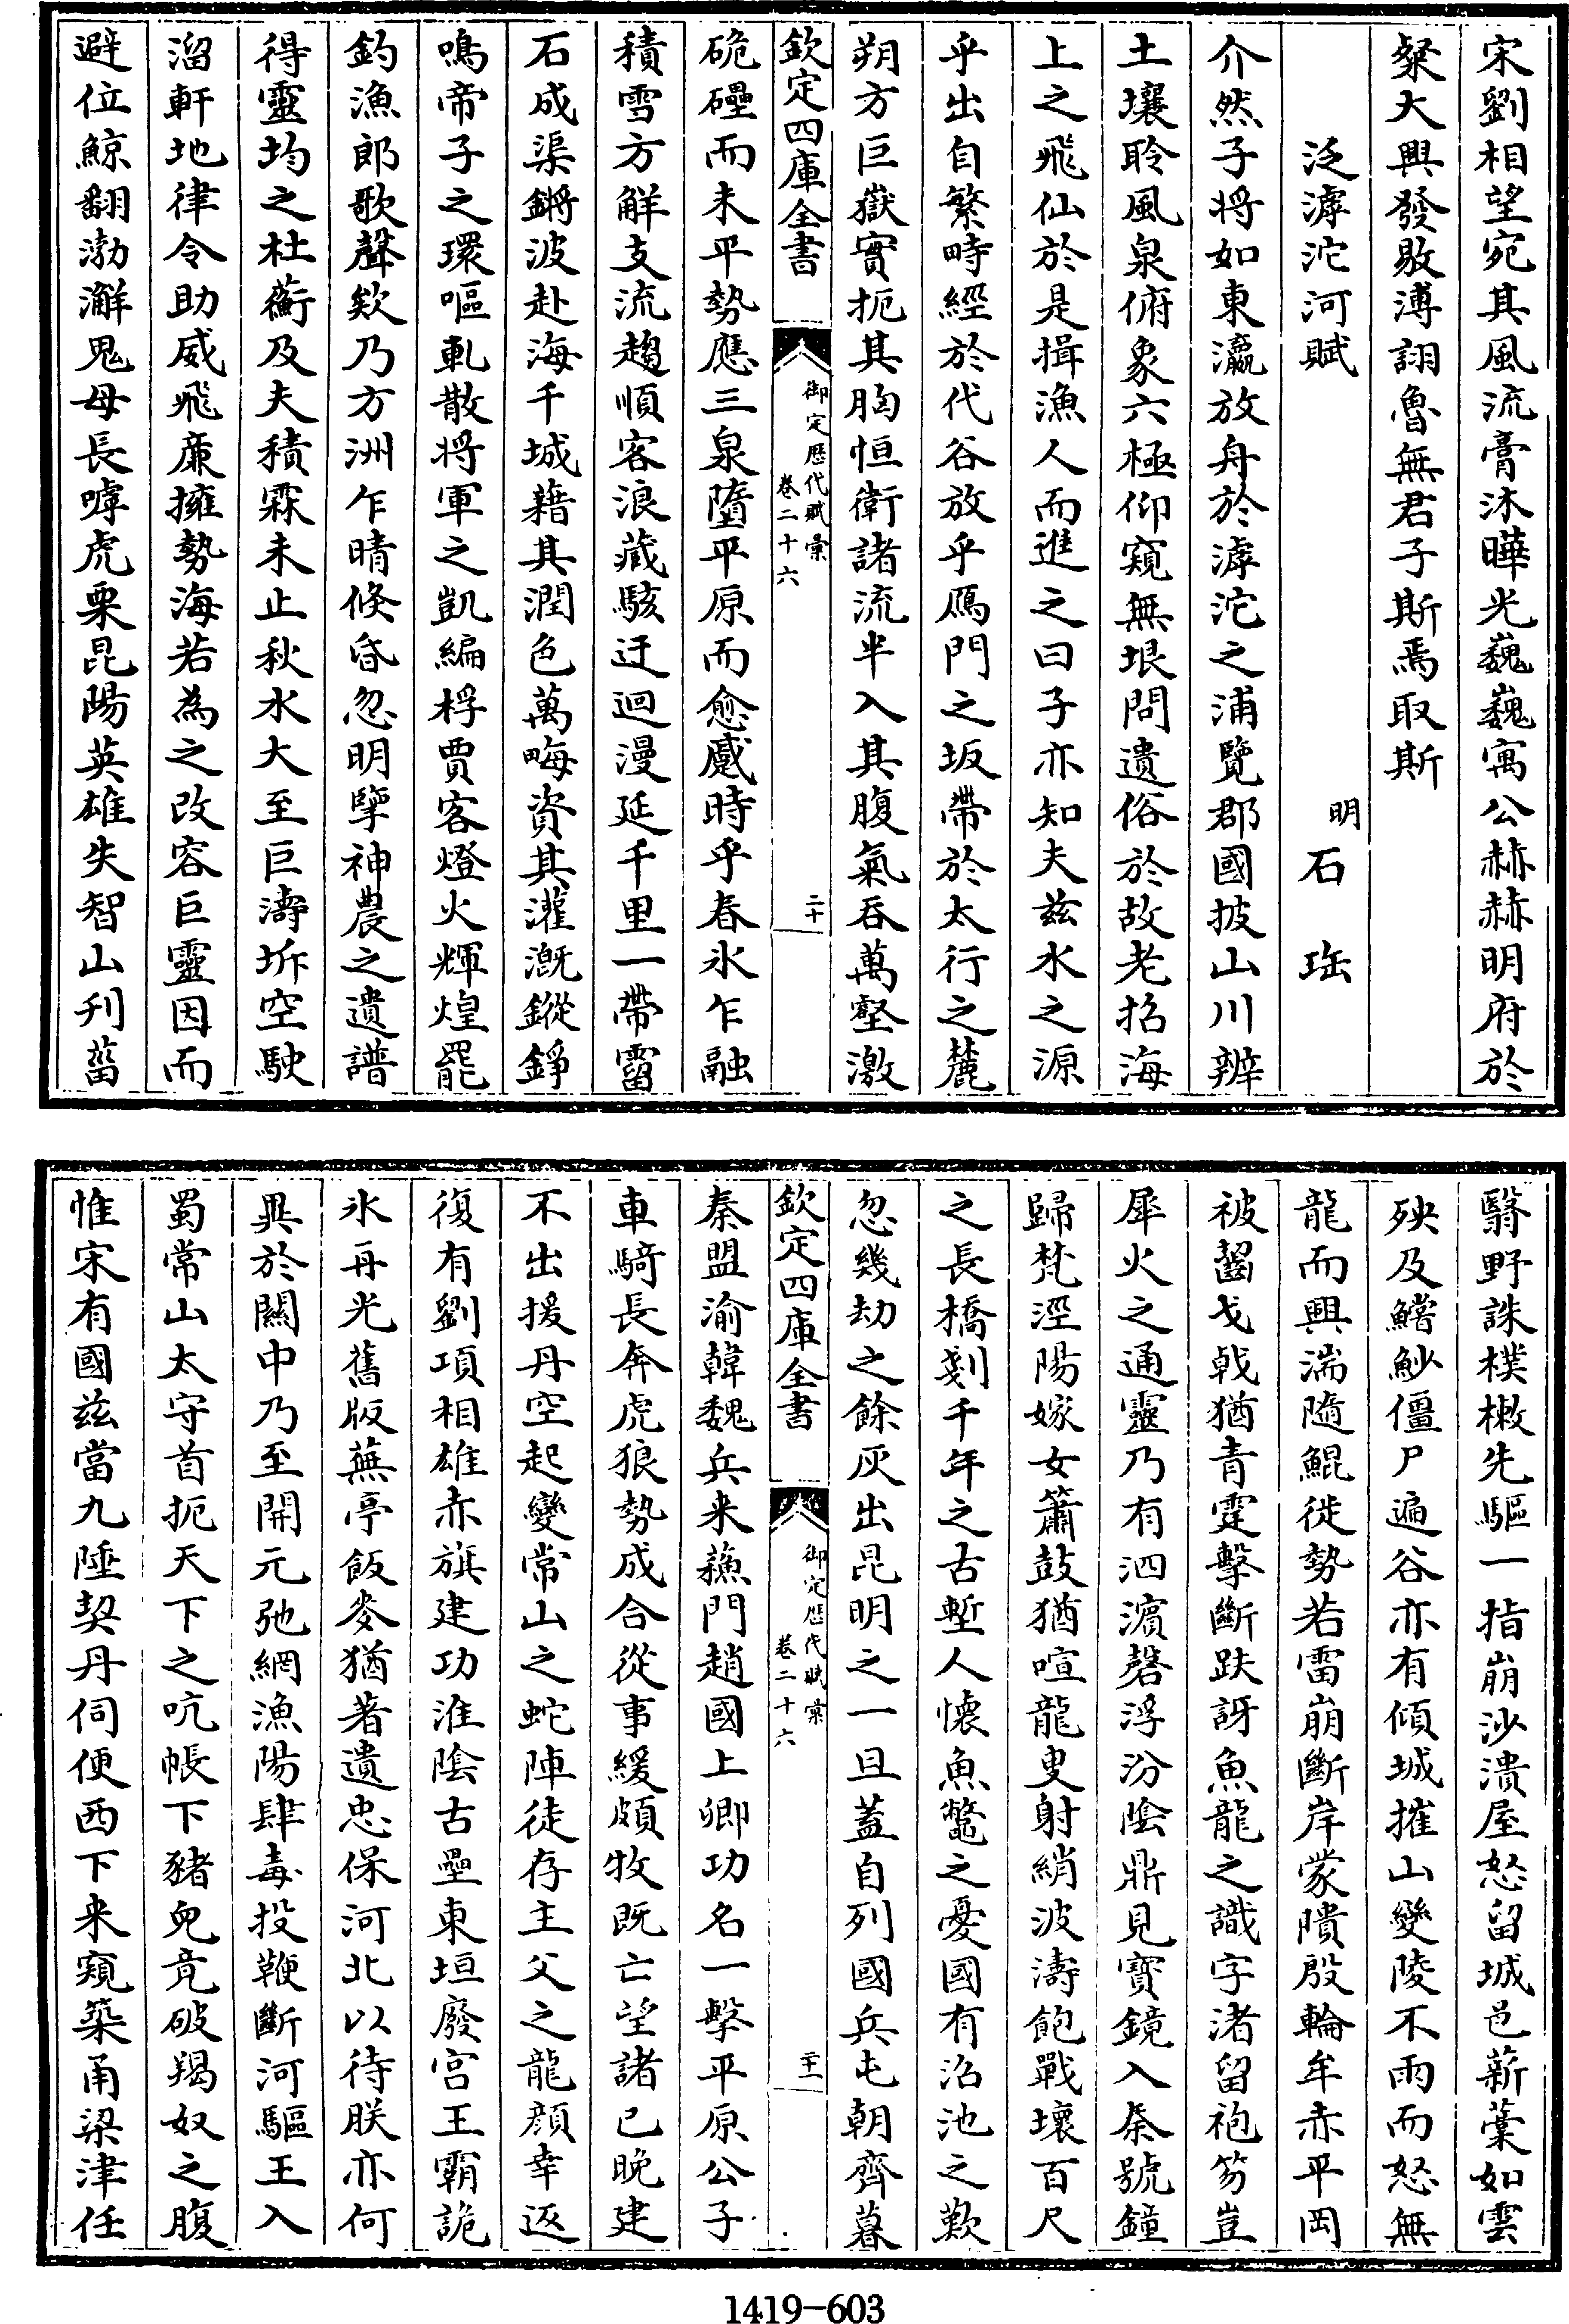 宋劉相望宛其風流膏沐曄光巍巍寓公赫赫明府於
粲大興發敭溥詡魯無君子斯焉取斯
泛滹沱河賦
明 石珤
介然子將如東瀛放舟於滹沱之浦覽郡國披山川辨
土壤聆風泉俯象六極仰窺無垠問遺俗於故老招海
上之飛仙於是揖漁人而進之曰子亦知夫茲水之源
乎出自繁畤經於代谷放乎鴈門之坂帶於太行之麓
朔方巨嶽實扼其胸恒衛諸流半入其腹氣吞萬壑激
欽定四庫全書
御定歷代賦彙
卷二十六
二十
硊礧而未平勢應三泉墮平原而愈蹙時乎春氷乍融
積雪方觧支流趨順客浪藏駭迂迴漫延千里一帶霤
石成渠鏘波赴海千城藉其潤色萬畮資其灌溉鏦錚
鳴帝子之環嘔軋散將軍之凱編桴賈客燈火輝煌罷
釣漁郎歌聲欸乃方洲乍晴倐昏忽明擘神農之遺譜
得靈均之杜蘅及夫積霖未止秋水大至巨濤坼空駛
溜軒地律令助威飛廉擁勢海若為之改容巨靈因而
避位鯨翻渤澥鬼母長嘷虎栗昆陽英雄失智山刋菑
翳野誅樸樕先驅一指崩沙潰屋怒留城邑薪藁如雲
殃及鱨魦僵尸遍谷亦有傾城摧山變陵不雨而怒無
龍而興湍隨鯤徙勢若雷崩斷岸蒙隤殷輪牟赤平岡
被齧戈戟猶青霆擊斷趺訝魚龍之識字渚留袍笏豈
犀火之通靈乃有泗濵磬浮汾陰鼎見寶鏡入秦號鐘
歸梵涇陽嫁女簫鼓猶喧龍叟射綃波濤飽戰壞百尺
之長橋剗千年之古塹人懷魚鼈之憂國有沼池之歎
忽幾劫之餘灰出昆明之一旦蓋自列國兵屯朝齊暮
欽定四庫全書
御定歷代賦彙
卷二十六
二十一
秦盟渝韓魏兵来蘓門趙國上卿功名一擊平原公子
車騎長奔虎狼勢成合從事緩頗牧既亡望諸已晚建
不出援丹空起變常山之蛇陣徒存主父之龍顔幸返
復有劉項相雄赤旗建功淮陰古壘東垣廢宮王霸詭
氷再光舊版蕪亭飯麥猶著遺忠保河北以待朕亦何
異於關中乃至開元弛網漁陽肆毒投鞭斷河驅王入
蜀常山太守首扼天下之吭帳下豬兒竟破羯奴之腹
惟宋有國茲當九陲契丹伺便西下来窺築甬梁津任
1419-603